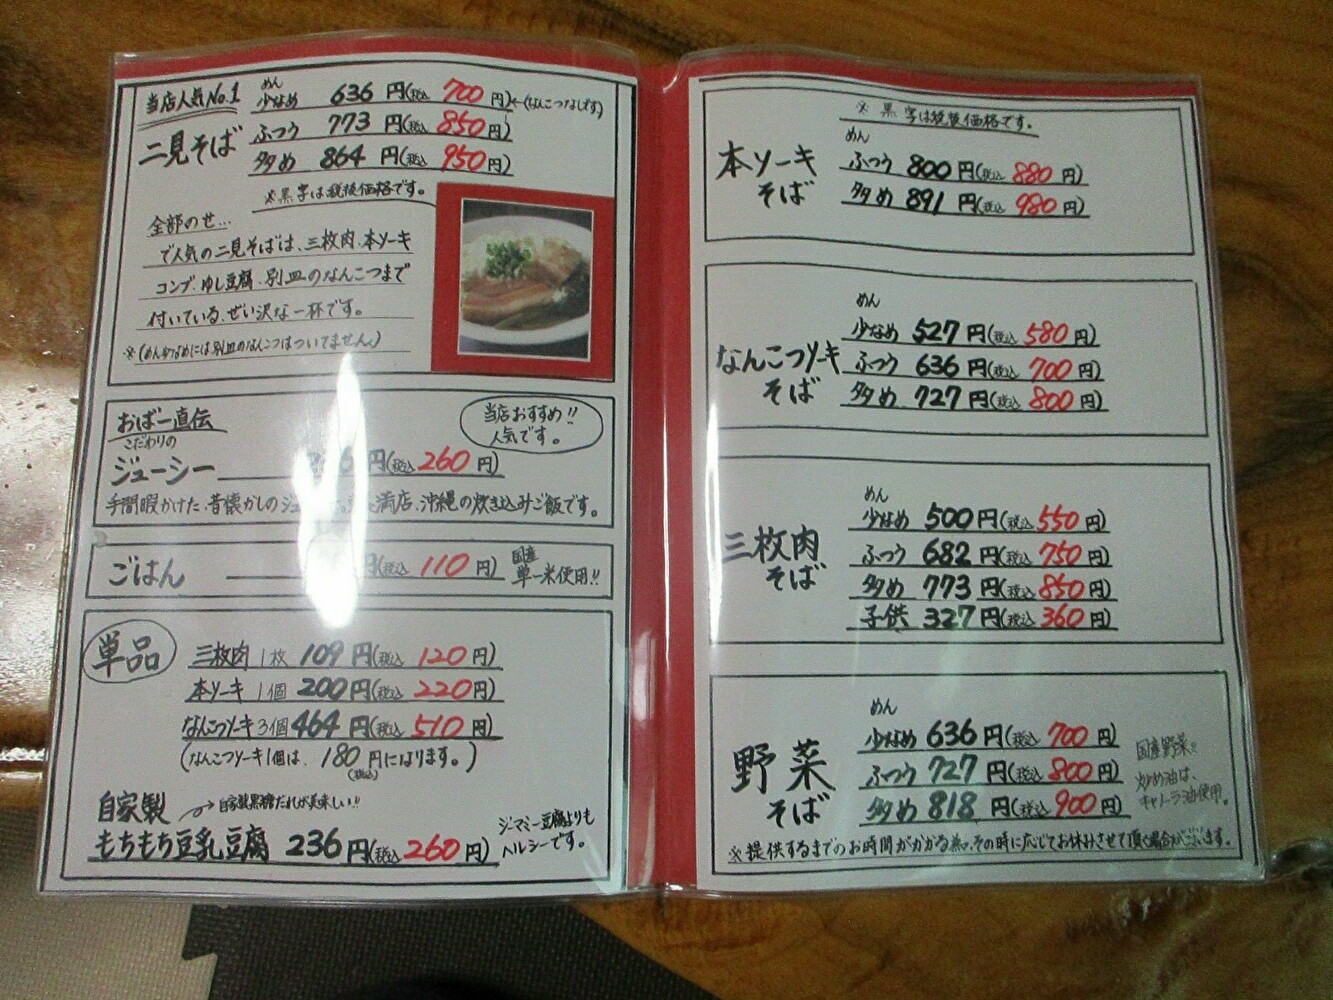 当店人気No.1
めん
少なめ 636 円(税込 700 円)←(なんこつなしです)
二見そば
ふつう 773 円(税込 850 円)
多め 864 円(税込 950 円)
※黒字は税抜価格です。
全部のせ…
で人気の二見そばは、三枚肉、本ソーキ
コンブ、ゆし豆腐、別皿のなんこつまで
付いている、ぜい沢な一杯です。
※(めん少なめには別皿のなんこつはついてません。)
おばー直伝
こだわりの
ジューシー 円(税込 260 円)
当店おすすめ!!
人気です。
手間暇かけた、昔懐かしのジュ 満店、沖縄の炊き込みご飯です。
ごはん 円(税込 110 円)
国産
単一米使用!!
単品
三枚肉 1枚 109 円(税込 120 円)
本ソーキ 1個 200 円(税込 220 円)
なんこつソーキ 3個 464 円(税込 510 円)
(なんこつソーキ1個は、180円になります。)
(税込)
自家製
自家製黒糖だれが美味しい!!
もちもち豆乳豆腐 236 円(税込 260 円)
ジーマミー豆腐よりも
ヘルシーです。
※黒字は税抜価格です。
本ソーキ
そば
めん
ふつう 800 円(税込 880 円)
多め 891 円(税込 980 円)
なんこつソーキ
そば
めん
少なめ 527 円(税込 580 円)
ふつう 636 円(税込 700 円)
多め 727 円(税込 800 円)
三枚肉
そば
めん
少なめ 500 円(税込 550 円)
ふつう 682 円(税込 750 円)
多め 773 円(税込 850 円)
子供 327 円(税込 360 円)
野菜
そば
めん
少なめ 636 円(税込 700 円)
ふつう 727 円(税込 800 円)
多め 818 円(税込 900 円)
国産野菜!!
炒め油は、
キャノーラ油使用。
※提供するまでのお時間がかかる為、その時に応じてお休みさせて頂く場合がございます。